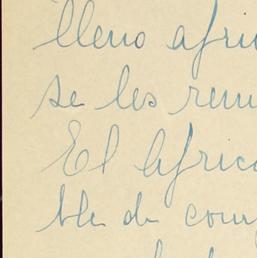 lleno afri
se les rem
El Africa
ble de com